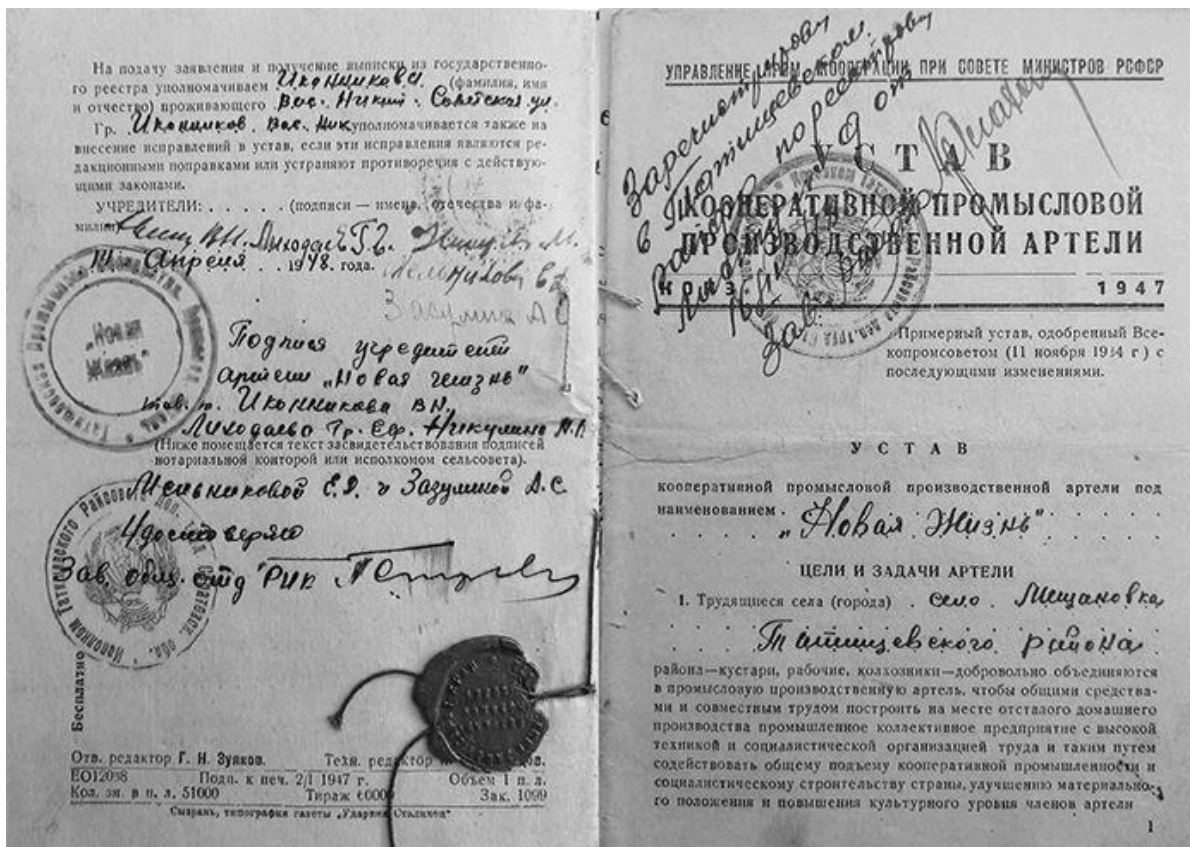 На подачу заявления и получение выписки из государственно-
го реестра уполномачиваем Иконникова (фамилия, имя
и отчество) проживающего Вас. Никит. Советская ул.
Гр. Иконников Вас. Ник уполномачивается также на
внесение исправлений в устав, если эти исправления являются ре-
дакционными поправками или устраняют противоречия с действую-
щими законами.
УЧРЕДИТЕЛИ: . . . . . (подписи — имена, отчества и фа-
милии)
Апреля . . 1948. года.
Мельникова
Зазулина А С
„Новая
Жизнь"
Подписи учредителей
артели „Новая жизнь"
Иконникова В.Н.
Лиходаево Гр. Еф. Никулина
(Ниже помещается текст засвидетельствования подписей
нотариальной конторой или исполкомом сельсовета).
Мельниковой Е.Д. и Зазулиной А.С.
Удостоверяю
Зав. общ. отд РИК
Бесплатно
Отв. редактор Г. И. Зуяков. Техн. редактор
ЕО12038 Подп. к печ. 2/I 1947 г. Объем 1 п. л.
Кол. зн. в п. л. 51000 Тираж Зак. 1099
Сызрань, типография газеты
УПРАВЛЕНИЕ ПРОМ КООПЕРАЦИИ ПРИ СОВЕТЕ МИНИСТРОВ РСФСР
Зарегистрирову
в Татищевском
по реестру
УСТАВ
КООПЕРАТИВНОЙ ПРОМЫСЛОВОЙ
ПРОИЗВОДСТВЕННОЙ АРТЕЛИ
1947
Примерный устав, одобренный Все-
копромсоветом (11 ноября 1944 г) с
последующими изменениями.
УСТАВ
кооперативной промысловой производственной артели под
наименованием . „Новая Жизнь"
ЦЕЛИ И ЗАДАЧИ АРТЕЛИ
1. Трудящиеся села (города) . село Мещановка
Татищевского района
района—кустари, рабочие, колхозники—добровольно объединяются
в промысловую производственную артель, чтобы общими средства-
ми и совместным трудом построить на месте отсталого домашнего
производства промышленное коллективное предприятие с высокой
техникой и социалистической организацией труда и таким путем
содействовать общему подъему кооперативной промышленности и
социалистическому строительству страны, улучшению материально-
го положения и повышения культурного уровня членов артели
1